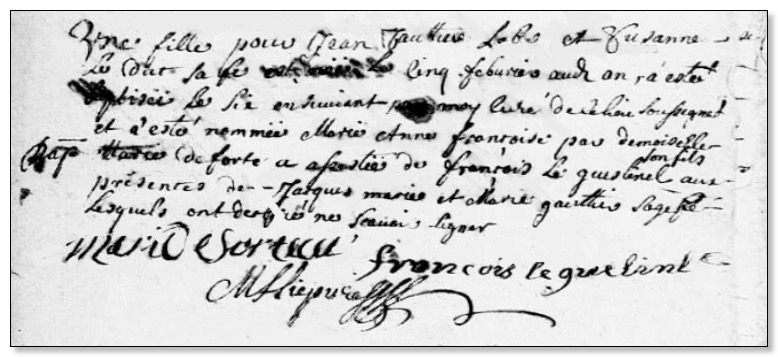 Une fille pour Jean Gauttier Lebe et Susanne
Le Duc sa fe est néé Le cinq feburier audt an r'a esté
Baptiseé Le Six ensuivant par moy Curé de Ce lieu soussigné
et a esté nommeé Marie Anne françoise par demoiselle
Bap Marie de forte a assisteé de françois Le guestinel son fils aux
présences de Jacques marie et Marie gauttier Sage fe
Lesquels ont declaré ne scavoir signer
françois le guestinel